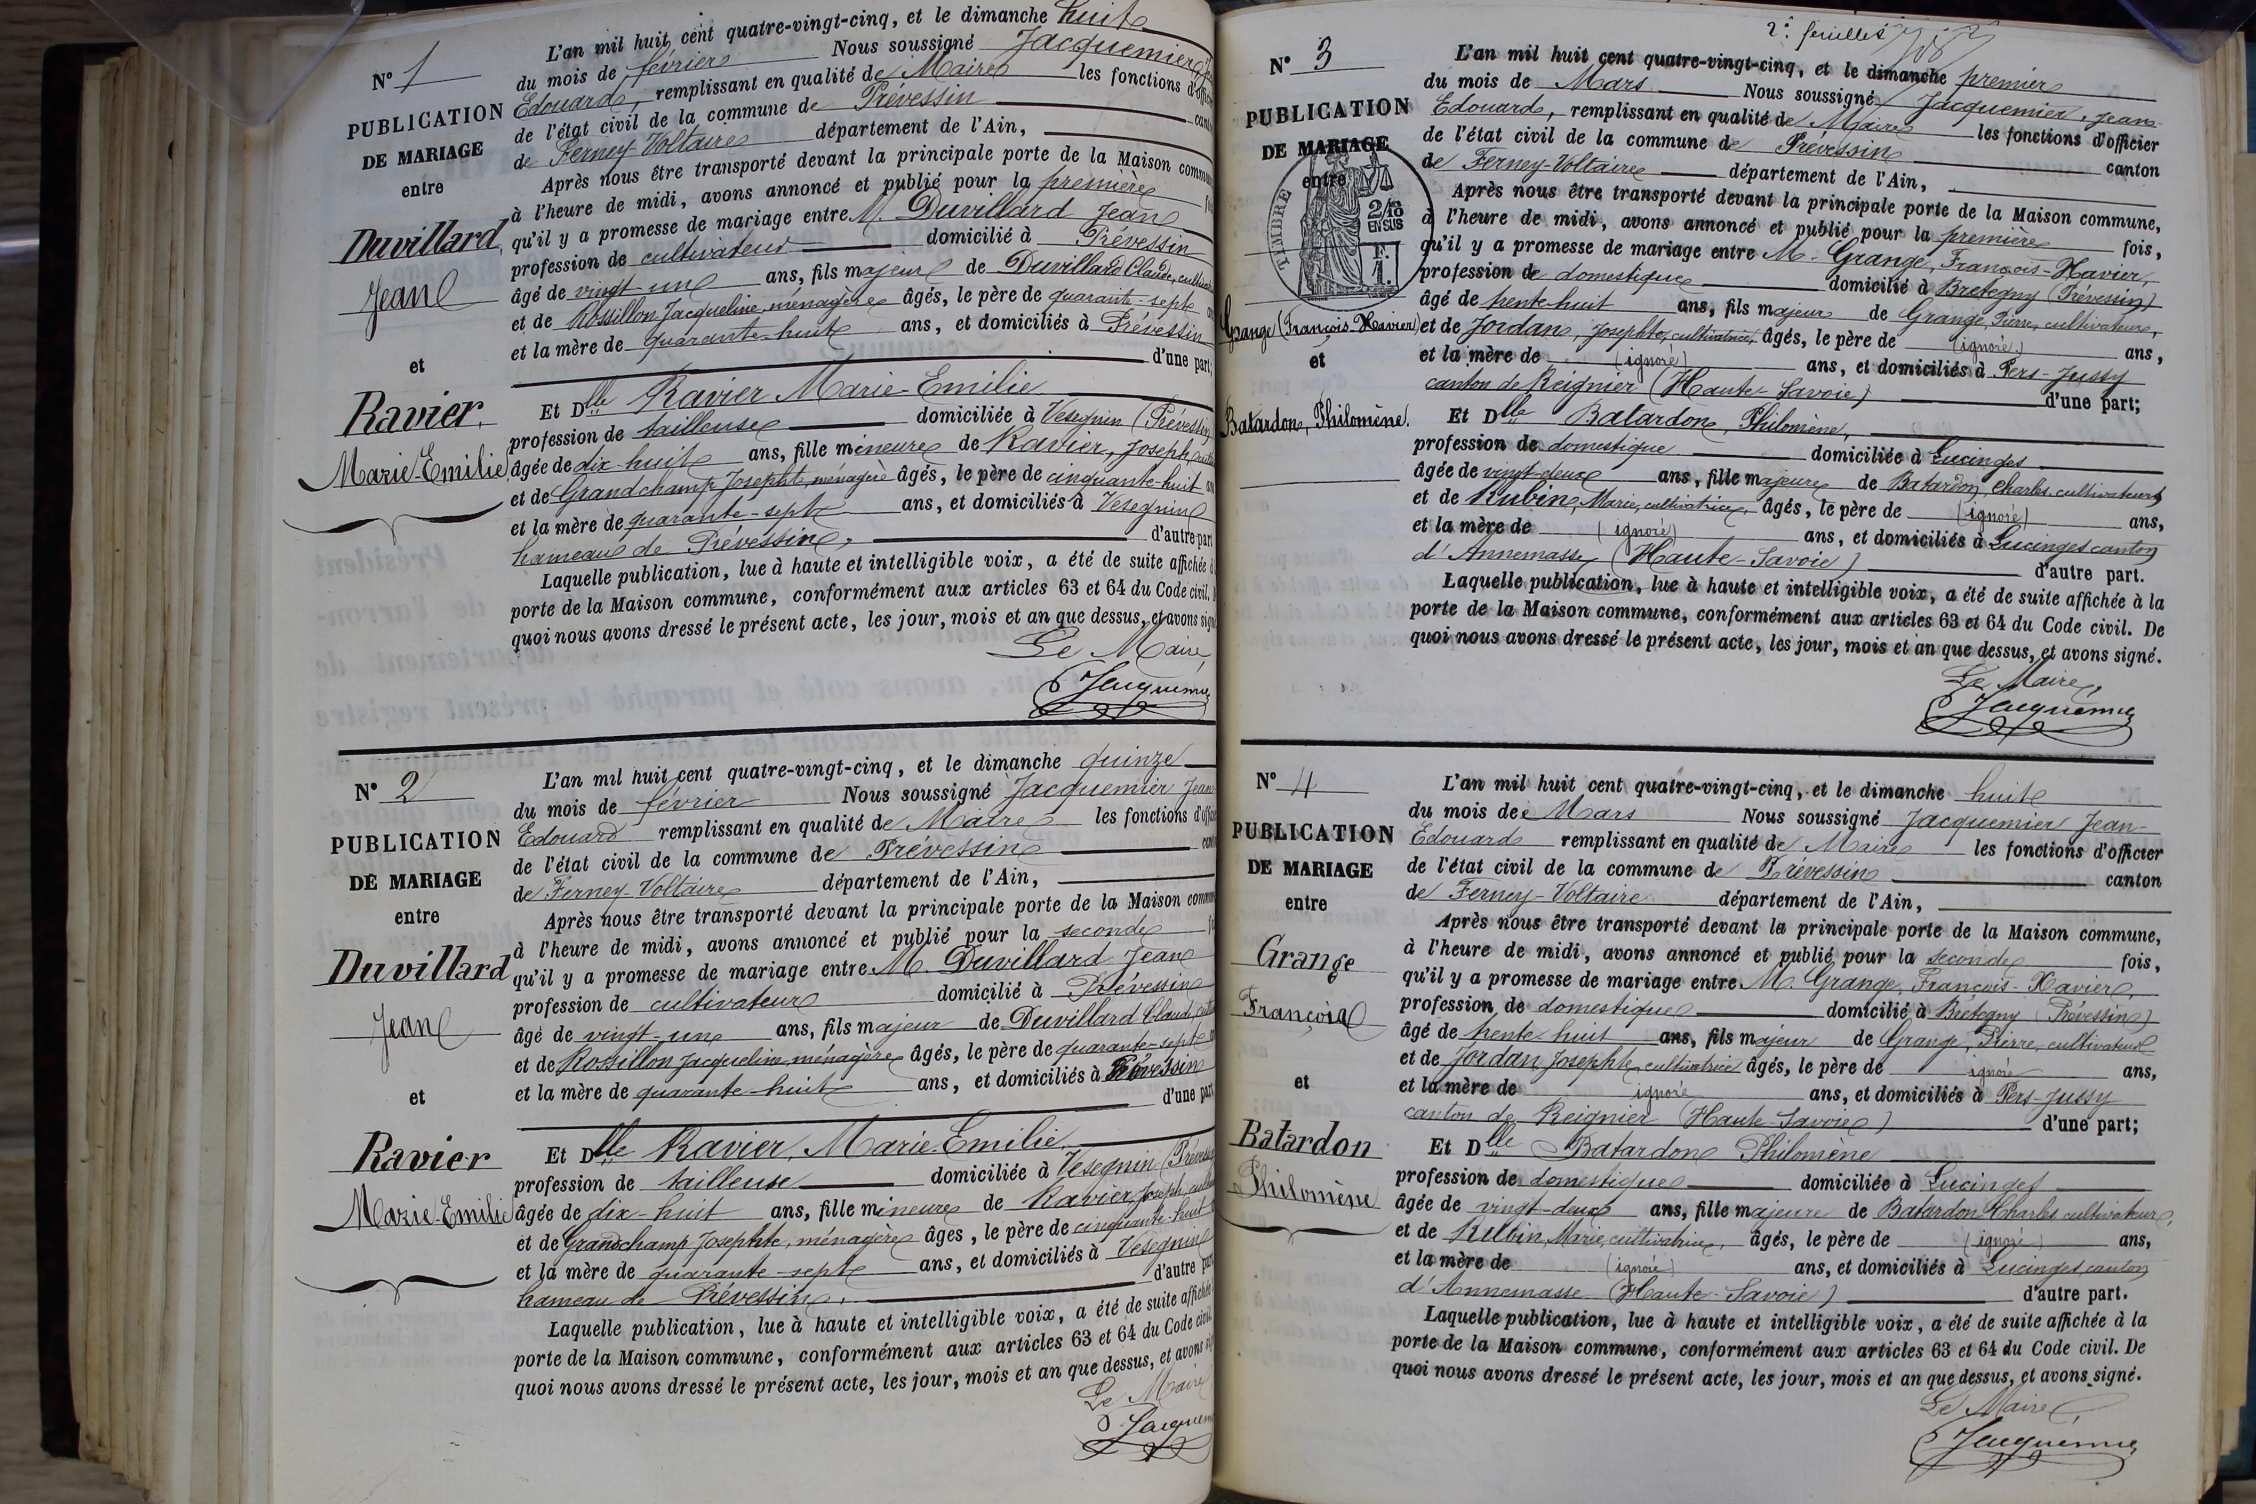 N° 1
PUBLICATION
DE MARIAGE
entre
Duvillard
Jean
et
Ravier
Marie-Emilie
L'an mil huit cent quatre-vingt-cinq, et le dimanche huit
du mois de février Nous soussigné Jacquemier
Edouard, remplissant en qualité de Maire les fonctions d'
de l'état civil de la commune de Prévessin
de Ferney-Voltaire département de l'Ain,
Après nous être transporté devant la principale porte de la Maison
à l'heure de midi, avons annoncé et publié pour la première
qu'il y a promesse de mariage entre M. Duvillard Jean
profession de cultivateur domicilié à Prévessin
âgé de vingt-un ans, fils majeur de Duvillard Claude,
et de Rossillon Jacqueline, ménagère âgés, le père de quarante-sept
et la mère de quarante-huit ans, et domiciliés à Prévessin
d'une part;
Et Dlle Ravier Marie-Emilie
profession de tailleuse domiciliée à Vesegnin (Prévessin
âgée de dix-huit ans, fille mineure de Ravier, Joseph,
et de Grandchamp Josephte, ménagère âgés, le père de cinquante-huit
et la mère de quarante-sept ans, et domiciliés à Vesegnin
hameau de Prévessin, d'autre part
Laquelle publication, lue à haute et intelligible voix, a été de suite affichée
porte de la Maison commune, conformément aux articles 63 et 64 du Code civil.
quoi nous avons dressé le présent acte, les jour, mois et an que dessus, et avons
Le Maire
Jacquemier
N° 2
PUBLICATION
DE MARIAGE
entre
Duvillard
Jean
et
Ravier
Marie-Emilie
L'an mil huit cent quatre-vingt-cinq, et le dimanche quinze
du mois de février Nous soussigné Jacquemier Jean
Edouard remplissant en qualité de Maire les fonctions
de l'état civil de la commune de Prévessin
de Ferney-Voltaire département de l'Ain,
Après nous être transporté devant la principale porte de la Maison
à l'heure de midi, avons annoncé et publié pour la seconde
qu'il y a promesse de mariage entre M. Duvillard Jean
profession de cultivateur domicilié à Prévessin
âgé de vingt-un ans, fils majeur de Duvillard Claude,
et de Rossillon Jacqueline ménagère âgés, le père de quarante-sept
et la mère de quarante-huit ans, et domiciliés à Prévessin
d'une part
Et Dlle Ravier, Marie-Emilie,
profession de tailleuse domiciliée à Vesegnin
âgée de dix-huit ans, fille mineure de Ravier, Joseph,
et de Grandchamp Josephte, ménagère âgés, le père de cinquante-huit
et la mère de quarante-sept ans, et domiciliés à Vesegnin
hameau de Prévessin, d'autre part
Laquelle publication, lue à haute et intelligible voix, a été de suite affichée
porte de la Maison commune, conformément aux articles 63 et 64 du Code civil.
quoi nous avons dressé le présent acte, les jour, mois et an que dessus, et avons
Le Maire
Jacquem
2e feuillet
N° 3
PUBLICATION
DE MARIAGE
entre
TIMBRE
2/10
EN SUS
F.
1.
Grange (François-Xavier)
et
Batardon, Philomène.
L'an mil huit cent quatre-vingt-cinq, et le dimanche premier
du mois de Mars Nous soussigné Jacquemier, Jean-
Edouard, remplissant en qualité de Maire les fonctions d'officier
de l'état civil de la commune de Prévessin canton
de Ferney-Voltaire département de l'Ain,
Après nous être transporté devant la principale porte de la Maison commune,
à l'heure de midi, avons annoncé et publié pour la première fois,
qu'il y a promesse de mariage entre M. Grange, François-Xavier,
profession de domestique domicilié à Bretegny (Prévessin)
âgé de trente-huit ans, fils majeur de Grange, Pierre, cultivateur,
et de Jordan, Josephte, cultivatrice, âgés, le père de (ignoré) ans,
et la mère de (ignoré) ans, et domiciliés à Pers-Jussy
canton de Reignier (Haute-Savoie) d'une part;
Et Dlle Batardon, Philomène,
profession de domestique domiciliée à Lucinges
âgée de vingt-deux ans, fille majeure de Batardon, Charles, cultivateur,
et de Rubin, Marie, cultivatrice, âgés, le père de (ignoré) ans,
et la mère de (ignoré) ans, et domiciliés à Lucinges canton
d'Annemasse (Haute-Savoie) d'autre part.
Laquelle publication, lue à haute et intelligible voix, a été de suite affichée à la
porte de la Maison commune, conformément aux articles 63 et 64 du Code civil. De
quoi nous avons dressé le présent acte, les jour, mois et an que dessus, et avons signé.
Le Maire,
Jacquemier
N° 4
PUBLICATION
DE MARIAGE
entre
Grange
François
et
Batardon
Philomène
L'an mil huit cent quatre-vingt-cinq, et le dimanche huit
du mois de Mars Nous soussigné Jacquemier Jean-
Edouard remplissant en qualité de Maire les fonctions d'officier
de l'état civil de la commune de Prévessin canton
de Ferney-Voltaire département de l'Ain,
Après nous être transporté devant la principale porte de la Maison commune,
à l'heure de midi, avons annoncé et publié pour la seconde fois,
qu'il y a promesse de mariage entre M. Grange, François-Xavier,
profession de domestique domicilié à Brétegny (Prévessin)
âgé de trente-huit ans, fils majeur de Grange, Pierre, cultivateur
et de Jordan, Josephte, cultivatrice âgés, le père de ignoré ans,
et la mère de ignoré ans, et domiciliés à Pers-Jussy
canton de Reignier (Haute-Savoie) d'une part;
Et Dlle Batardon Philomène
profession de domestique domiciliée à Lucinges
âgée de vingt-deux ans, fille majeure de Batardon Charles cultivateur,
et de Rubin, Marie, cultivatrice, âgés, le père de (ignoré) ans,
et la mère de (ignoré) ans, et domiciliés à Lucinges, canton
d'Annemasse (Haute-Savoie) d'autre part.
Laquelle publication, lue à haute et intelligible voix, a été de suite affichée à la
porte de la Maison commune, conformément aux articles 63 et 64 du Code civil. De
quoi nous avons dressé le présent acte, les jour, mois et an que dessus, et avons signé.
Le Maire,
Jacquemier